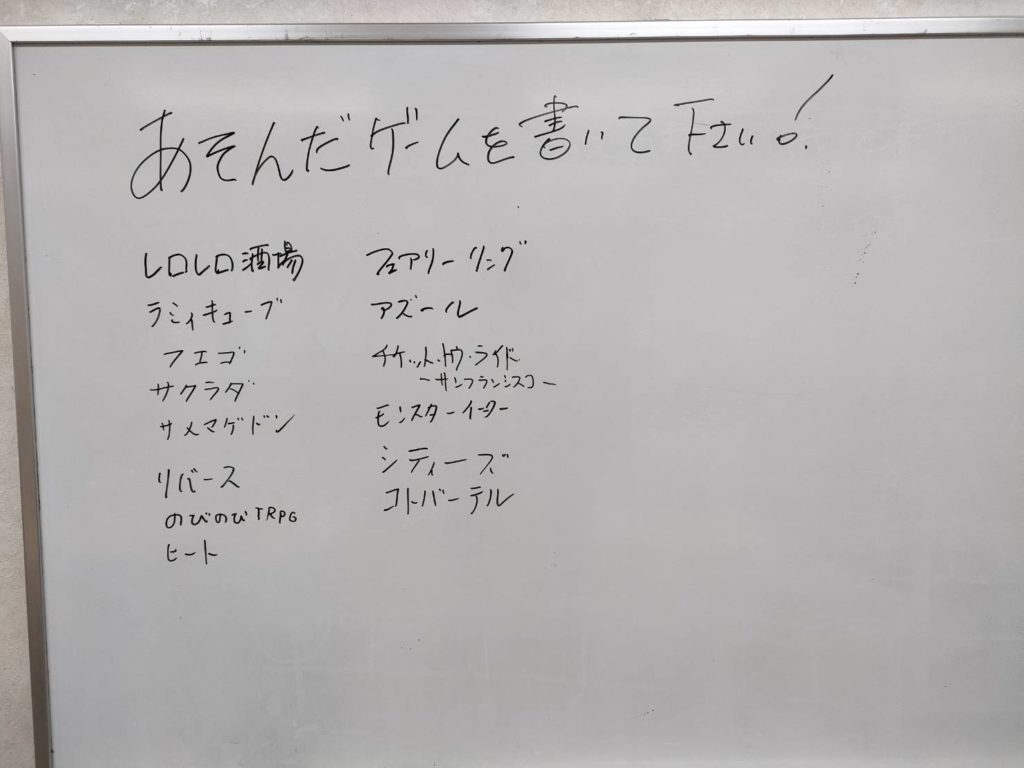 あそんだゲームを書いて下さい。!
レロレロ酒場
ラミィキューブ
フエゴ
サクラダ
サメマゲドン
リバース
のびのびTRPG
ヒート
フェアリーリング
アズール
チケット・トゥ・ライド
ーサンフランシスコー
モンスターイーター
シティーズ
コトバーテル